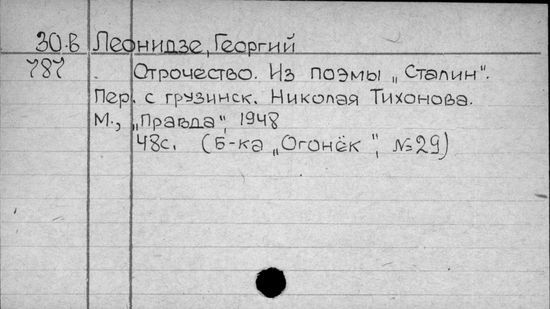 30-В Леонидзе, Георгий
787 Отрочество. Из поэмы „Сталин".
Пер. с грузинск. Николая Тихонова.
М., „Правда", 1948
48с. (Б-ка „Огонёк", №29)